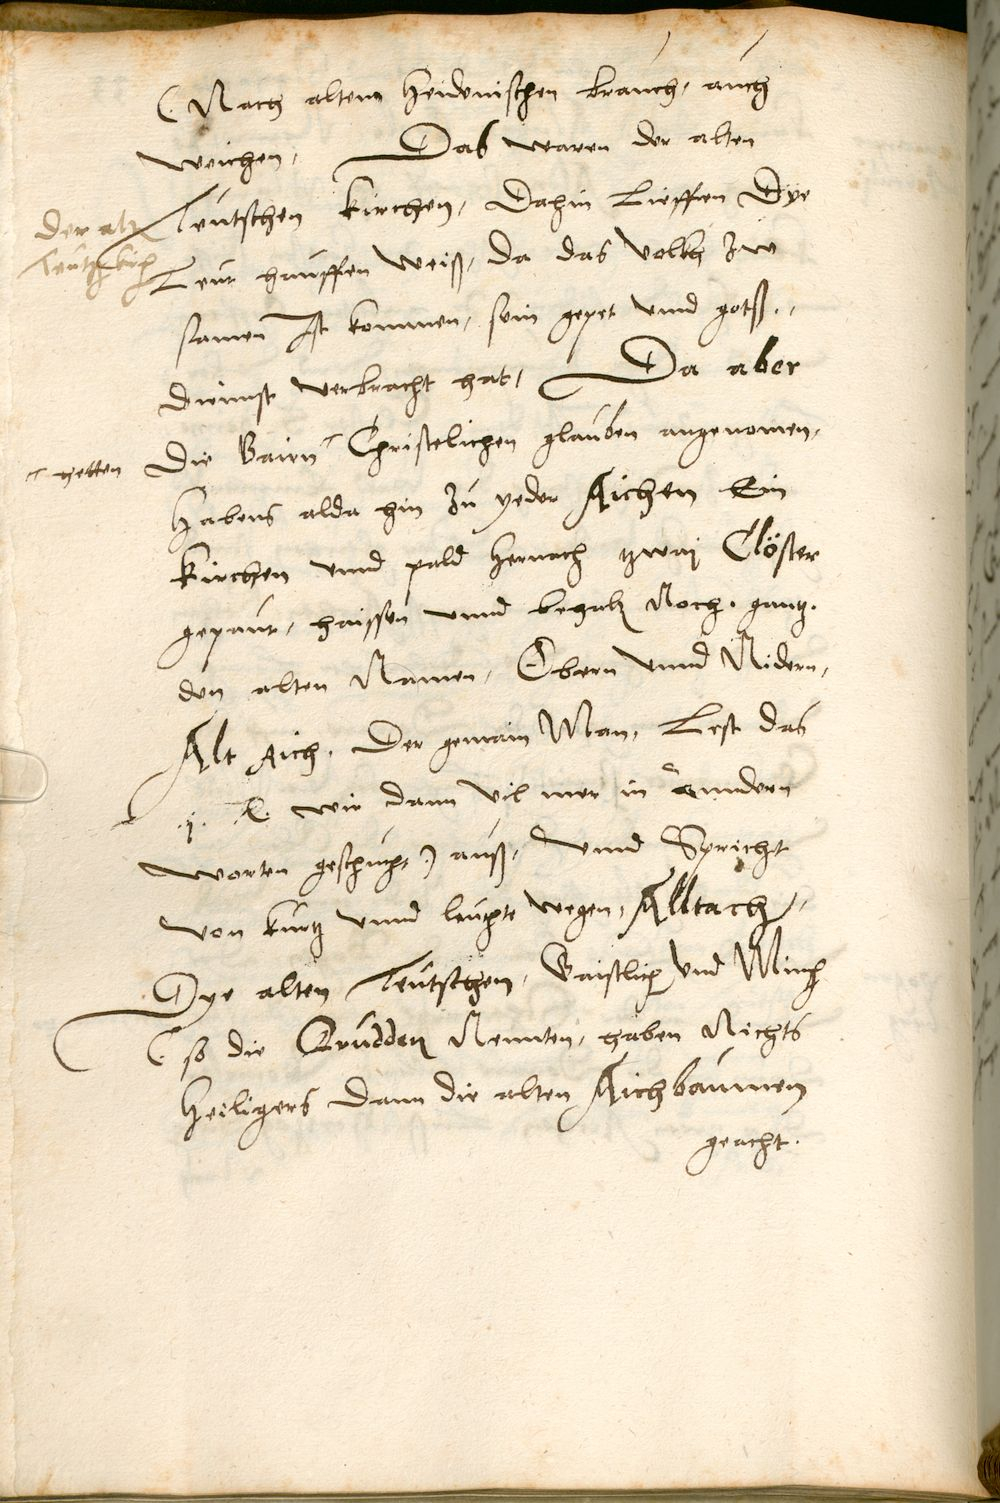 (Nach altem Heidenischen brauch, auch
weichen, Das waren der alten
der alt
Teutschen Kirchen, Dahin Lieffen Dye
Teutsch kirch
Leut hauffen weiß, da das volkh zw
samen Ist kommen, sein gepet vnnd gotß,,
diennst verbracht hat, Da aber
Die Bairn Christelichen glauben angenomen,
hetten
Habens alda hin zu yeder Aichen Ein
kirchen vnnd pald hernach zway Clöster
gepaut, haissen vnnd Noch. gantz.
den alten Namen, Obern vnnd Nidern,
Alt Aich. Der gemain Man, Lest das
.j. wie dann vil mer in anndern
worten geschicht) auß, vnnd Spricht
von kurtz vnnd wegen, Alltach,,
Dye alten Teutschen, Gaistlich vnd Münch
(so die Drudden Nennten, haben Nichts
Heiligers dann die alten Aichbaumen
geacht.